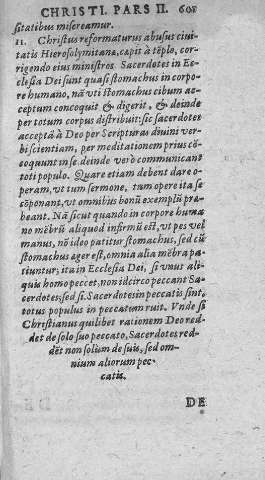 CHRISTI. PARS II. 608
sitatibus misereamur.
11. Christus reformaturus abusus ciui
tatis Hierosolymitanæ, capit à tẽplo, cor
rigendo eius ministros. Sacerdotes in Ec
clesia Dei sunt quasi stomachus in corpo
re humano, nã vti stomachus cibum ac
ceptum concoquit & digerit, & deinde
per totum corpus distribuit: sic sacerdotes
acceptã à Deo per Scripturas diuini ver-
bi scientiam, per meditationem prius cõ
coquunt in se, deinde verò communicant
toti populo. Quare etiam debent dare o-
peram, vt tum sermone, tum opere ita se
cõponant, vt omnibus bonũ exemplũ præ
beant. Nã sicut quando in corpore huma
no mẽbrũ aliquod infirmũ est, vt pes vel
manus, nõ ideo patitur stomachus, sed cũ
stomachus æger est, omnia alia mẽbra pa
tiuntur; ita in Ecclesia Dei, si vnus ali-
quis homo peccet, non idcirco peccant Sa-
cerdotes; sed si Sacerdotes in peccatis sint,
totus populus in peccatum ruit. Vnde si
Christianus quilibet rationem Deo red-
det de solo suo peccato, Sacerdotes red-
dẽt non solum de suis, sed om-
nium aliorum pec-
catis.
DE